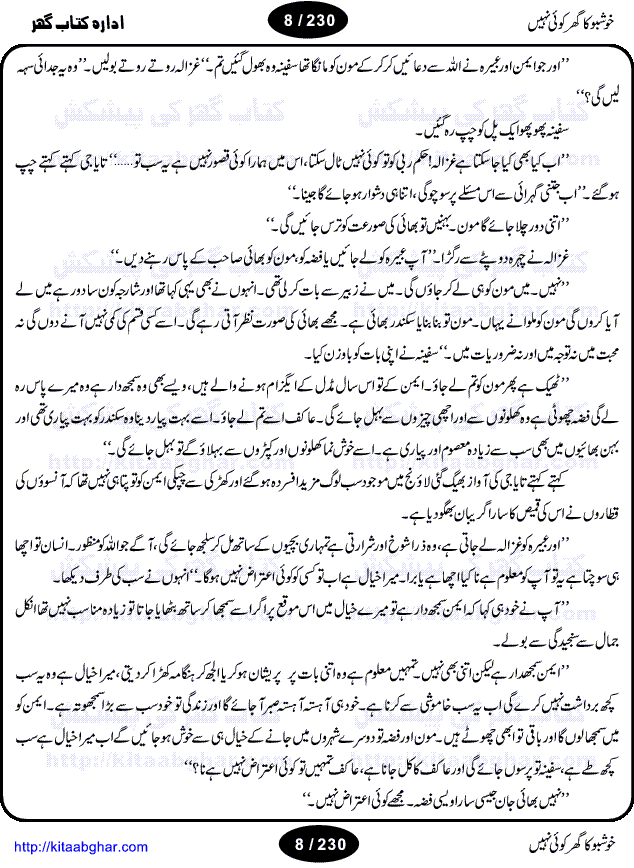 خوشبو کا گھر کوئی نہیں
8 / 230
ادارہ کتاب گھر
’’اور جو ایمن اور عمیرہ نے اللہ سے دعائیں کر کر کے مون کو مانگا تھا سفینہ وہ بھول گئیں تم۔‘‘ غزالہ روتے روتے بولیں۔ ’’وہ یہ جدائی سہہ
لیں گی؟‘‘
سفینہ پھوپھو ایک پل کو چپ رہ گئیں۔
’’اب کیا بھی کیا جا سکتا ہے غزالہ! حکم ربی کو تو کوئی نہیں ٹال سکتا، اس میں ہمارا کوئی قصور نہیں ہے یہ سب تو......‘‘ تایا جی کہتے کہتے چپ
ہو گئے۔ ’’اب جتنی گہرائی سے اس مسئلے پر سوچو گی، اتنا ہی دشوار ہو جائے گا جینا۔‘‘
’’اتنی دور چلا جائے گا مون۔ بہنیں تو بھائی کی صورت کو ترس جائیں گی۔‘‘
غزالہ نے چہرہ دوپٹے سے رگڑا۔ ’’آپ عمیرہ کو لے جائیں یا فضہ کو، مون کو بھائی صاحب کے پاس رہنے دیں۔‘‘
’’نہیں۔ میں مون کو ہی لے کر جاؤں گی۔ میں نے زبیر سے بات کر لی تھی۔ انہوں نے بھی یہی کہا تھا اور شارجہ کون سا دور ہے میں لے
آیا کروں گی مون کو ملوانے یہاں۔ مون تو بنا بنایا سکندر بھائی ہے۔ مجھے بھائی کی صورت نظر آتی رہے گی۔ اسے کسی قسم کی کمی نہیں آنے دوں گی نہ
محبت میں نہ توجہ میں اور نہ ضروریات میں۔‘‘ سفینہ نے اپنی بات کو با وزن کیا۔
’’ٹھیک ہے پھر مون کو تم لے جاؤ۔ ایمن کے تو اس سال مڈل کے ایگزام ہونے والے ہیں، ویسے بھی وہ سمجھ دار ہے وہ میرے پاس رہ
لے گی فضہ چھوٹی ہے وہ کھلونوں سے اور اچھی چیزوں سے بہل جائے گی۔ عاکف اسے تم لے جاؤ۔ اسے بہت پیار دینا وہ سکندر کو بہت پیاری تھی اور
بہن بھائیوں میں بھی سب سے زیادہ معصوم اور پیاری ہے۔ اسے خوش نما کھلونوں اور کپڑوں سے بہلاؤ گے تو بہل جائے گی۔‘‘
کہتے کہتے تایا جی کی آواز بھیگ گئی لاؤنج میں موجود سب لوگ مزید افسردہ ہو گئے اور کھڑکی سے چپکی ایمن کو تو پتا ہی نہیں تھا کہ آنسوؤں کی
قطاروں نے اس کی قمیص کا سارا گریبان بھگو دیا ہے۔
’’اور عمیرہ کو غزالہ لے جاتی ہے، وہ ذرا شوخ اور شرارتی ہے تمہاری بچیوں کے ساتھ مل کر سنبھل جائے گی، آگے جو اللہ کو منظور۔ انسان تو اچھا
ہی سوچتا ہے یہ تو آپ کو معلوم ہے نا کیا اچھا ہے یا برا۔ میرا خیال ہے اب تو کسی کو کوئی اعتراض نہیں ہو گا۔‘‘ انہوں نے سب کی طرف دیکھا۔
’’آپ نے خود ہی کہا کہ ایمن سمجھ دار ہے تو میرے خیال میں اس موقع پر اگر اسے سمجھا کر ساتھ بٹھایا جاتا تو زیادہ مناسب نہیں تھا انکل
جمال سے سنجیدگی سے بولے۔
’’ایمن سمجھدار ہے لیکن اتنی بھی نہیں۔ تمہیں معلوم ہے وہ اتنی بات پر پریشان ہو کر یا الجھ کر ہنگامہ کھڑا کر دیتی، میرا خیال ہے وہ یہ سب
کچھ برداشت نہیں کرے گی اب یہ سب خاموشی سے کرنا ہے۔ خود ہی آہستہ آہستہ صبر آ جائے گا اور زندگی تو خود سب سے بڑا سمجھوتہ ہے۔ ایمن کو
میں سمجھا لوں گا اور باقی تو ابھی چھوٹے ہیں۔ مون اور فضہ تو دوسرے شہروں میں جانے کے خیال ہی سے خوش ہو جائیں گے اب میرا خیال ہے سب
کچھ طے ہے، سفینہ تو پرسوں جائے گی اور عاکف کا کل جانا ہے، عاکف تمہیں تو کوئی اعتراض نہیں ہے نا؟‘‘
’’نہیں بھائی جان جیسی سارا ویسی فضہ۔ مجھے کوئی اعتراض نہیں۔‘‘
خوشبو کا گھر کوئی نہیں
8 / 230
http://kitaabghar.com
کتاب گھر کی پیشکش
http://kitaabghar.com